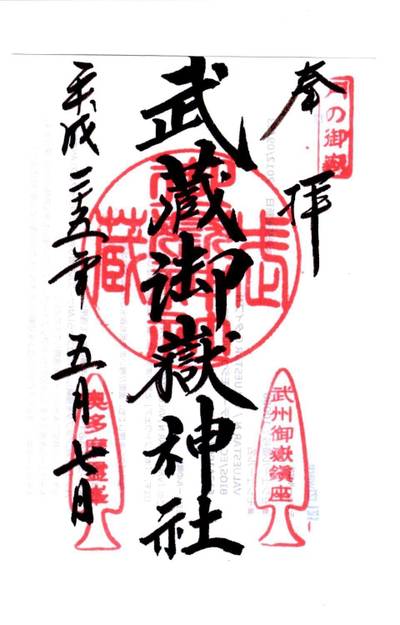 奉拝
武蔵御嶽神社
平成二十五年五月七日
武州御嶽鎮座
奥多摩霊座